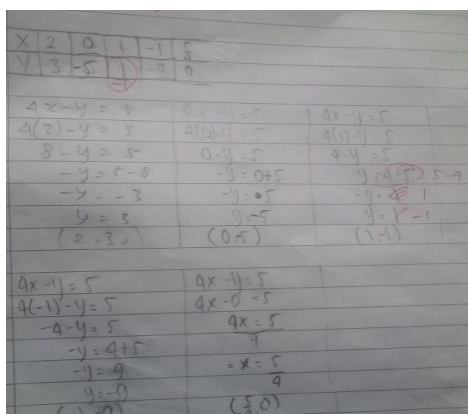 X 2 0 1 -1 5/4
Y 3 -5 1 -9 0
-1
4x-y = 5
4(2)-y = 5
8-y = 5
-y = 5-8
-y = -3
y = 3
(2,3)
4x-y=5
4(0)-y=5
0-y=5
-y=0+5
-y=5
y=-5
(0-5)
4x-y=5
4(1)-y=5
4-y=5
-y=4-5 5-4
-y= 1
y= -1
(1-1)
4x-y=5
4(-1)-y=5
-4-y=5
-y=4+5
-y=9
y=-9
4x-y=5
4x-0=5
4x=5
4
x=5
4
(5/4 0)